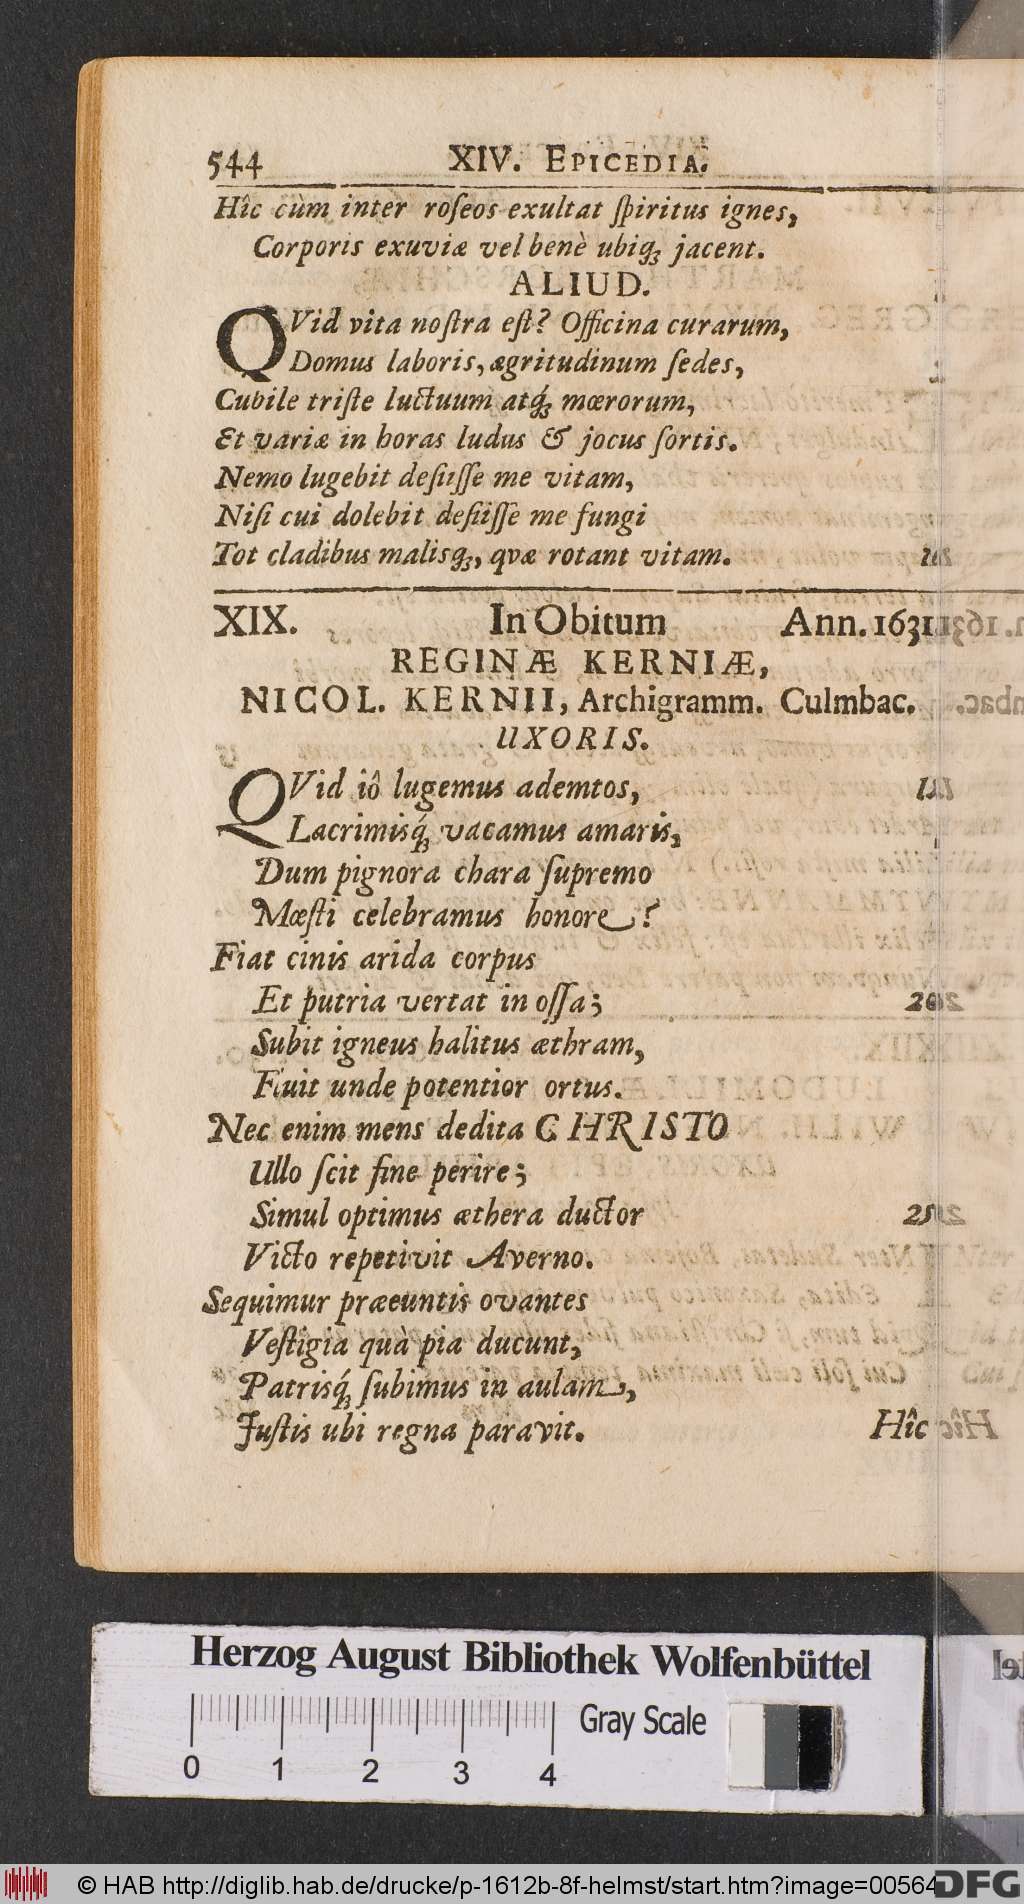 544 XIV. EPICEDIA.
Hîc cùm inter roſeos exultat ſpiritus ignes,
Corporis exuviæ vel benè ubiqꝫ jacent.
ALIUD.
QVid vita noſtra eſt? Officina curarum,
Domus laboris, ægritudinum ſedes,
Cubile triſte luctuum atqꝫ́ mœrorum,
Et variæ in horas ludus & jocus ſortis.
Nemo lugebit deſiiſſe me vitam,
Niſi cui dolebit deſiiſſe me fungi
Tot cladibus malisqꝫ, qvæ rotant vitam.
XIX. In Obitum Ann. 1631
REGINÆ KERNIÆ,
NICOL. KERNII, Archigramm. Culmbac.
UXORIS.
QVid iô lugemus ademtos,
Lacrimisqꝫ́ vacamus amaris,
Dum pignora chara ſupremo
Mœſti celebramus honore?
Fiat cinis arida corpus
Et putria vertat in oſſa;
Subit igneus halitus æthram,
Fuit unde potentior ortus.
Nec enim mens dedita CHRISTO
Ullo ſcit fine perire;
Simul optimus æthera ductor
Victo repetivit Averno.
Sequimur præeuntis ovantes
Veſtigia quà pia ducunt,
Patrisqꝫ́ ſubimus in aulam,
Juſtis ubi regna paravit.
Hîc
Herzog August Bibliothek Wolfenbüttel
Gray Scale
0 1 2 3 4
© HAB http://diglib.hab.de/drucke/p-1612b-8f-helmst/start.htm?image=00564
DFG